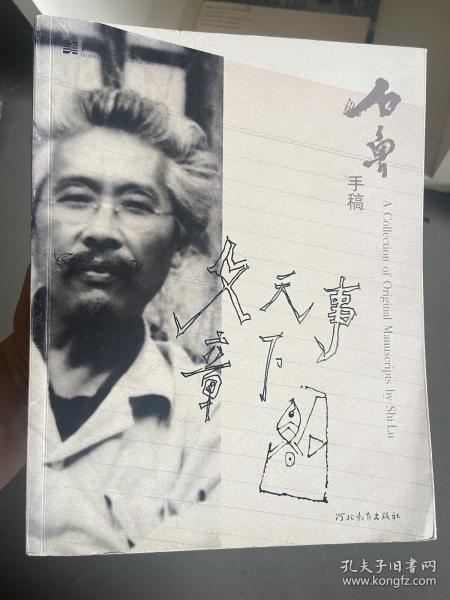 石鲁
手稿
A Collection of Original Manuscripts by Shi Lu
文章
天下
事
河北教育出版社
孔夫子旧书网
www.kongfz.com